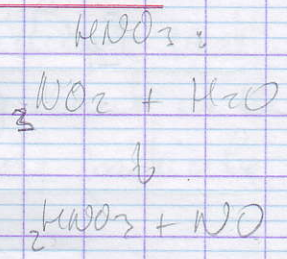 HNO3:
3NO2 + H2O
↓
2HNO3 + NO